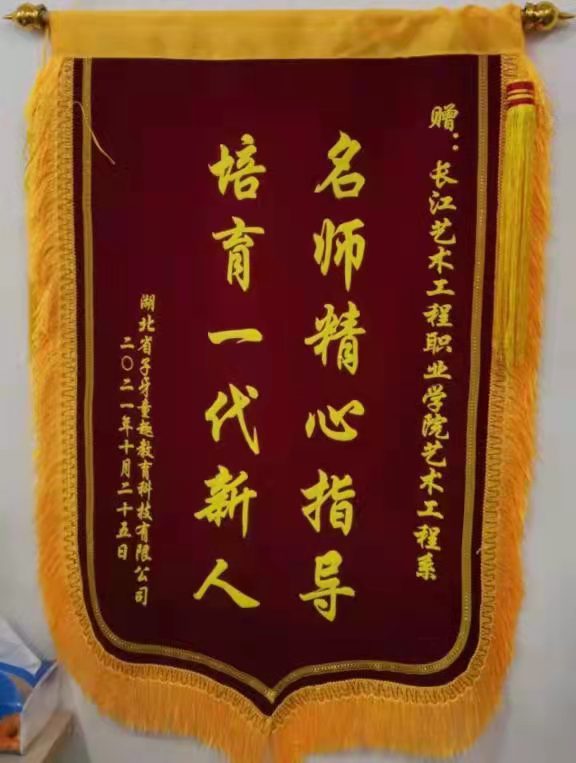 赠：长江艺术工程职业学院艺术工程系
名师精心指导
培育一代新人
湖北省子牙童趣教育科技有限公司
二〇二一年十月二十五日